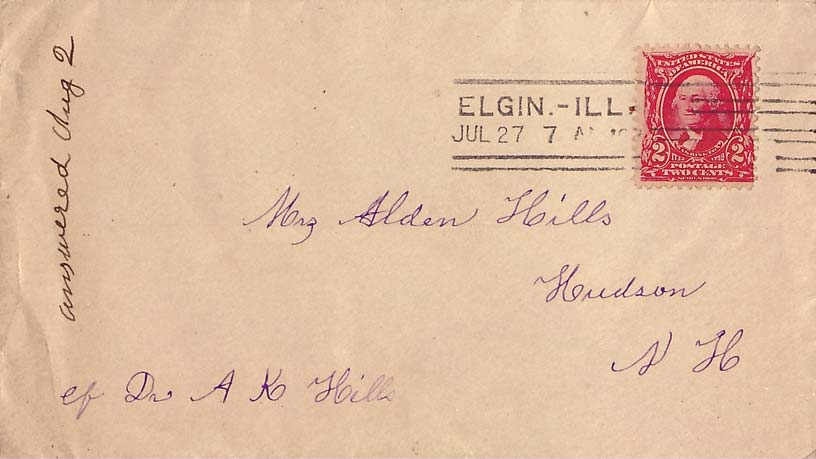 answered Aug 2
UNITED STATES
OF AMERICA
ELGIN.-ILL.
JUL 27 7 A
WASHINGTON
2 2
POSTAGE
TWO CENTS
Mrs Alden Hills
Hudson
N H
c/o Dr A K Hills